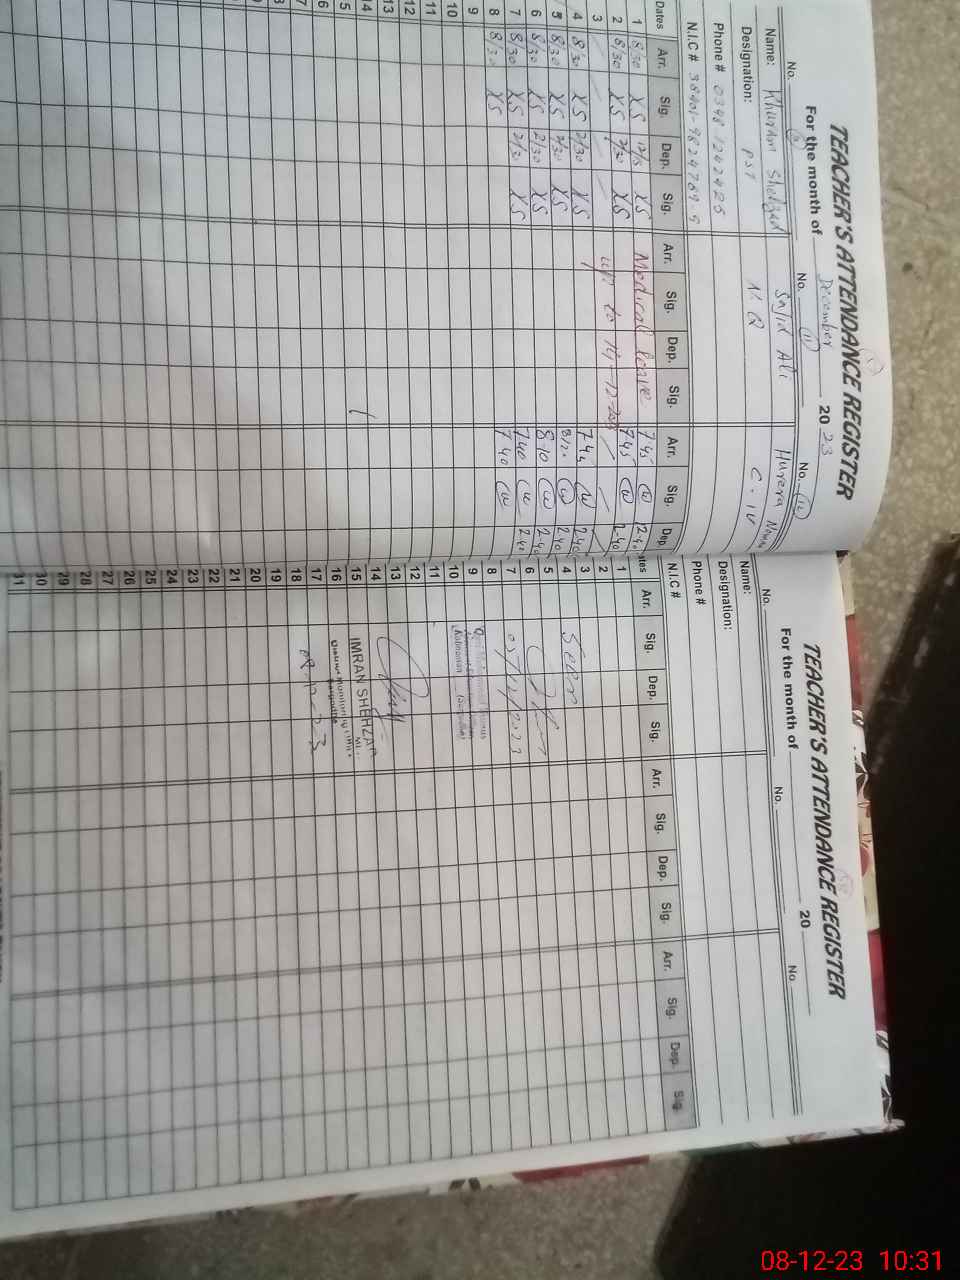 TEACHER'S ATTENDANCE REGISTER
For the month of December 2023
No. No. 11 No. 12
Name: Khuram Shehzad Sajid Ali Hurera
Designation: PST N.Q C.IV
Phone # 0348 1242425
N.I.C # 38401-9824769-9
Dates Arr. Sig. Dep. Sig. Arr. Sig. Dep. Sig. Arr. Sig. Dep.
1 8/30 XS 12/5 XS Medical leave 7.45 12.40
2 8/30 XS 2/30 XS up to 14-12-2023 7.45 2.40
3
4 8/30 XS 2/30 XS 2.40
5 8/30 XS 2/30 XS 2.40
6 8/30 XS 2/30 XS 8.10 2.40
7 8/30 XS 2/30 XS 7.40 2.40
8 8/30 XS 7.40
9
10
11
12
13
14
15
16
17
TEACHER'S ATTENDANCE REGISTER
For the month of 20
No. No. No
Name:
Designation:
Phone #
N.I.C #
ates Arr. Sig. Dep. Sig. Arr. Sig. Dep. Sig. Arr. Sig. Dep. Sig.
1
2
3
4
5
6
7
8
9
10
11
12
13
14
15 IMRAN SHEHZAD
16
17
18
19
20
21
22
23
24
25
26
27
28
29
30
31
08-12-23 10:31